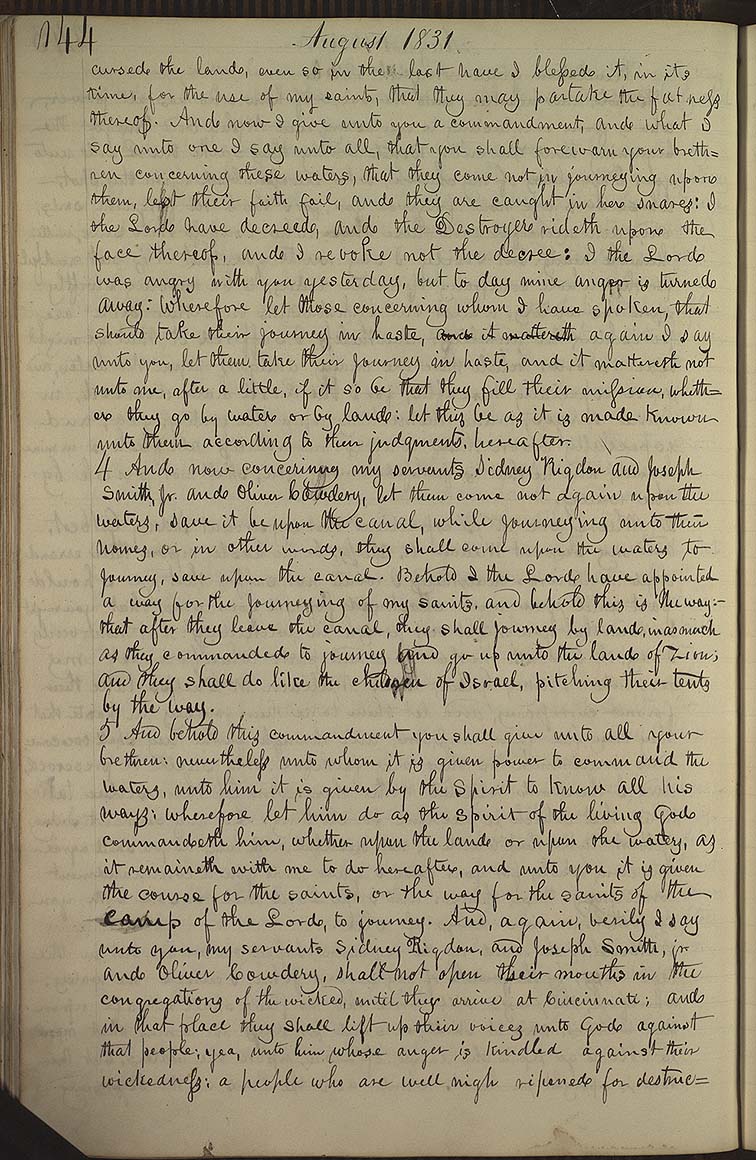 144 August 1831.
cursed the land, even so in the last have I blessed it, in its
time, for the use of my saints, that they may partake the fatness
thereof. And now I give unto you a commandment, and what I
say unto one I say unto all, that you shall forewarn your breth=
ren concerning these waters, that they come not in journeying upon
them, lest their faith fail, and they are caught in her snares: I
the Lord have decreed, and the Destroyer rideth upon the
face thereof, and I revoke not the decree: I the Lord
was angry with you yesterday, but to day mine anger is turned
away: Wherefore let those concerning whom I have spoken, that
should take their journey in haste, and it mattereth again I say
unto you, let them take their journey in haste, and it mattereth not
unto me, after a little, if it so be that they fill their mission, wheth=
er they go by water or by land: let this be as it is made known
unto them according to their judgments, hereafter.
4 And now concerning my servants Sidney Rigdon and Joseph
Smith, Jr. and Oliver Cowdery, let them come not again upon the
waters, save it be upon the canal, while journeying unto their
homes, or in other words, they shall come upon the waters to
journey, save upon the canal. Behold I the Lord have appointed
a way for the journeying of my saints, and behold this is the way:-
that after they leave the canal, they shall journey by land, inasmuch
as they commanded to journey and go up unto the land of Zion;
and they shall do like the children of Israel, pitching their tents
by the way.
5 And behold this commandment you shall give unto all your
brethren: nevertheless unto whom it is given power to command the
waters, unto him it is given by the Spirit to know all his
ways: wherefore let him do as the spirit of the living God
commandeth him, whether upon the land or upon the waters, as
it remaineth with me to do hereafter, and unto you it is given
the course for the saints, or the way for the saints of the
camp of the Lord, to journey. And, again, verily I say
unto you, my servants Sidney Rigdon, and Joseph Smith, jr.
and Oliver Cowdery, shall not open their mouths in the
congregations of the wicked, until they arrive at Cincinnati; and
in that place they shall lift up their voices unto God against
that people; yea, unto him whose anger is kindled against their
wickedness; a people who are well nigh ripened for destruc=